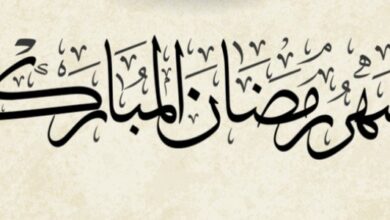 شهر رمضان المبارك